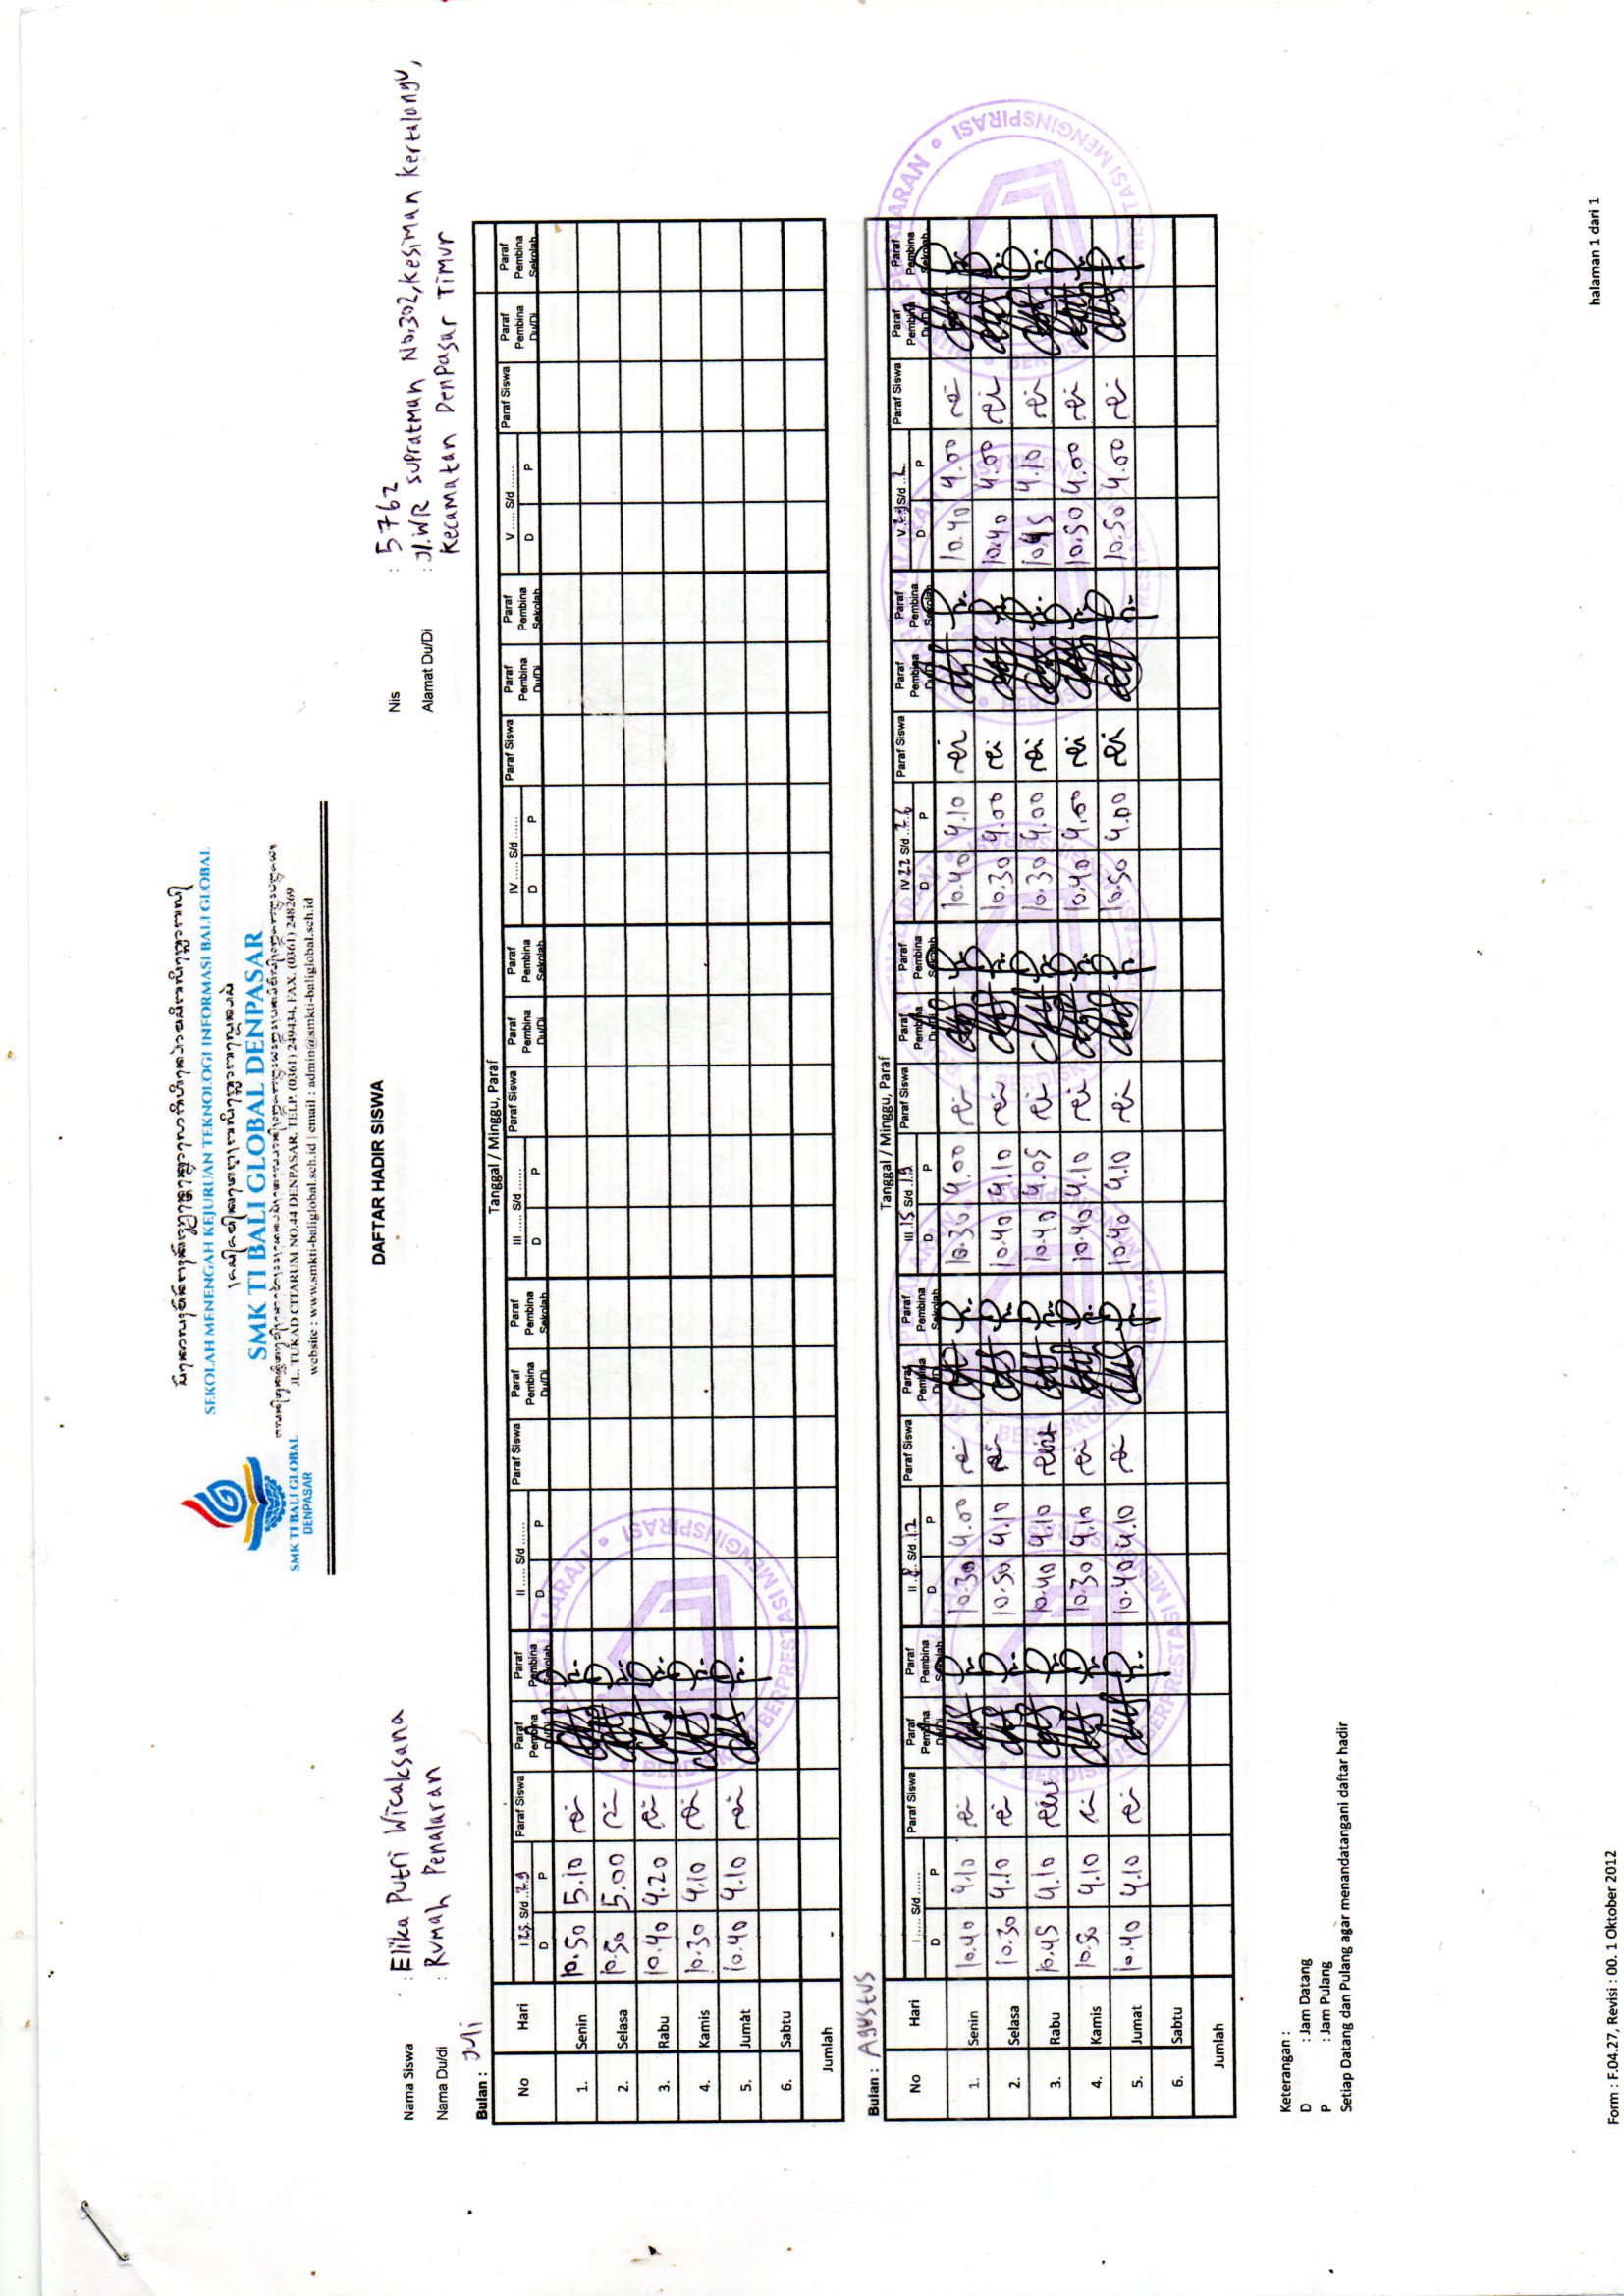 SEKOLAH MENENGAH KEJURUAN TEKNOLOGI INFORMASI BALI GLOBAL
SMK TI BALI GLOBAL DENPASAR
SMK TI BALI GLOBAL
DENPASAR
JL. TUKAD CITARUM NO.44 DENPASAR, TELP. (0361) 249434, FAX. (0361) 248269
website : www.smkti-baliglobal.sch.id | email : admin@smkti-baliglobal.sch.id
DAFTAR HADIR SISWA
Nama Siswa : Elika Putri Wicaksana
Nis : 5762
Nama Du/di : Rumah Penalaran
Alamat Du/Di : Jl.WR Supratman No.302, Kesiman Kertalangu,
Kecamatan Denpasar Timur
Bulan : Juli
Tanggal / Minggu, Paraf
No Hari I 25 S/d ..29 Paraf Siswa Paraf Pembina Du/Di Paraf Pembina Sekolah II ..... S/d ...... Paraf Siswa Paraf Pembina Du/Di Paraf Pembina Sekolah III ..... S/d ...... Paraf Siswa Paraf Pembina Du/Di Paraf Pembina Sekolah IV ..... S/d ...... Paraf Siswa Paraf Pembina Du/Di Paraf Pembina Sekolah V ..... S/d ...... Paraf Siswa Paraf Pembina Du/Di Paraf Pembina Sekolah
D P D P D P D P D P
1. Senin 10.50 5.10
2. Selasa 10.50 5.00
3. Rabu 10.40 4.20
4. Kamis 10.30 4.10
5. Jumat 10.40 4.10
6. Sabtu
Jumlah
BERPRESTASI MENGINSPIRASI
Bulan : Agustus
Tanggal / Minggu, Paraf
No Hari I ..... S/d ...... Paraf Siswa Paraf Pembina Du/Di Paraf Pembina Sekolah II .8. S/d .12 Paraf Siswa Paraf Pembina Du/Di Paraf Pembina Sekolah III 15 S/d .19 Paraf Siswa Paraf Pembina Du/Di Paraf Pembina Sekolah IV 22 S/d .26 Paraf Siswa Paraf Pembina Du/Di Paraf Pembina Sekolah V 29 S/d ..2. Paraf Siswa Paraf Pembina Du/Di Paraf Pembina Sekolah
D P D P D P D P D P
1. Senin 10.40 4.10 10.30 4.00 10.30 4.00 10.40 4.10 rei 10.40 4.00
2. Selasa 10.30 4.10 10.50 4.10 10.40 4.10 10.30 4.00 rei 10.40 4.00 rei
3. Rabu 10.45 4.10 10.40 4.10 10.40 4.05 rei 10.30 4.00 rei 10.45 4.10 rei
4. Kamis 10.50 4.10 10.30 4.10 rei 10.40 4.10 rei 10.40 4.00 rei 10.50 4.00 rei
5. Jumat 10.40 4.10 rei 10.40 4.10 10.40 4.10 rei 10.50 4.00 rei 10.50 4.00 rei
6. Sabtu
Jumlah
BERPRESTASI MENGINSPIRASI
Keterangan :
D : Jam Datang
P : Jam Pulang
Setiap Datang dan Pulang agar menandatangani daftar hadir
halaman 1 dari 1
Form : F.04.27, Revisi : 00. 1 Oktober 2012